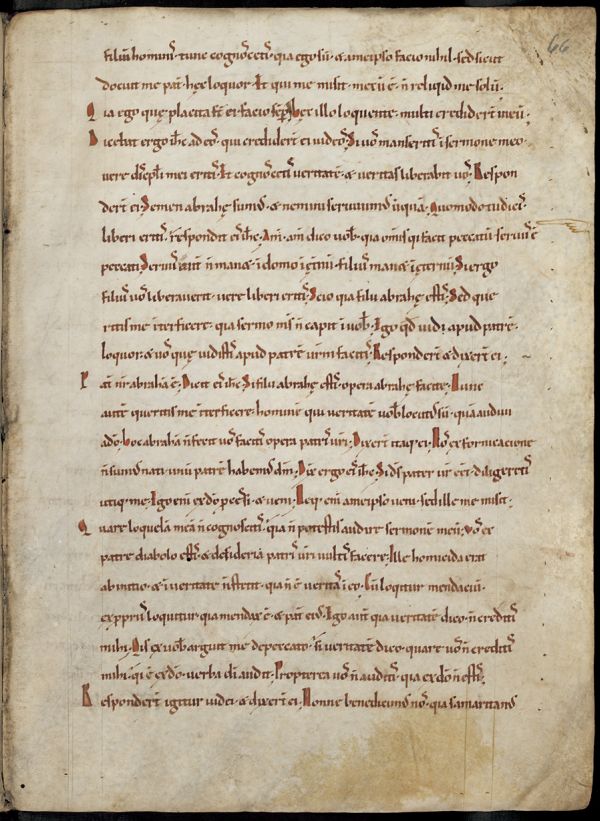 66
filiū hominis · tunc cognoscetis · quia ego sū · & a meipso facio nihil · sed sicut
docuit me pat̄ · hęc loquor · Et qui me misit · mecū ē · n̄ reliqid me solū ·
Quia ego quę placita s̄t ei · facio sēp · Hęc illo loquente · multi credidert̄ ineū ·
Dicebat ergo ih̄c ad eos · qui credider̄t ei iudeos · Si vos manseritis ī sermone meo ·
vere discipli mei eritis · Et cognoscetis veritatē · & veritas liberabit vos · Respon
der̄t ei · Semen abrahę sumus · & nemini seruiuimus ūquā · Quomodo tu dicis ·
liberi eritis · Respondit eis ih̄c · Am̄ · am̄ dico vob̄ · quia omīs qi facit peccatū · seruus ē
peccati · Seruus aut̄ n̄ man& ī domo īęt̄nū · filius man& ī ęternū · Si ergo
filius vos liberauerit · vere liberi eritis · Scio qia filii abrahę estis · Sed quę
ritis me īterficere · quia sermo ms̄ n̄ capit ī vob̄ · Ego qd̄ vidi apud patrē ·
loquor · & vos quę vidistis apud patrē vrm̄ facitis · Responder̄t & dixer̄t ei ·
Pat̄ nr̄ abrahā ē · Dicit eis ih̄c · Si filii abrahę estis · opera abrahę facite · Nunc
autē queritis me īterficere · hominē qui veritatē vob̄ locutus sū · quā audiui
a dō · Hoc abrahā n̄ fecit · vos facitis opera patris vr̄i · Dixer̄t itaq ei · Nos ex fornicacione
n̄ sumus nati · unū patrē habemus dm̄ · Dix̄ ergo eis ih̄c · Si ds̄ pater vr̄ ēēt · diligeretis
utiq · me · Ego enī ex dō pcessi · & veni · Neq · enī a meipso veni · sed ille me misit ·
Quare loquelā meā n̄ cognoscitis · quia n̄ potestis audire sermonē meū · Vos ex
patre diabolo estis · & desideria patris vr̄i vultis facere · Ille homicida erat
ab initio · & ī veritate n̄ stetit · qia n̄ ē veritas ī eo · Cū loqitur mendaciū ·
ex ppriis loquitur · quia mendax ē · & pat̄ eius · Ego aut̄ qia veritatē dico · n̄ creditis
mihi · Qis ex vob̄ arguit me de peccato · Si veritatē dico · quare vos n̄ creditis
mihi · qi ē ex dō · verba dī audit · Propterea vos n̄ auditis · quia ex dō n̄ estis ·
Responder̄t igitur iudei · & dixer̄t ei · Nonne bene dicimus nos · qia samaritanus